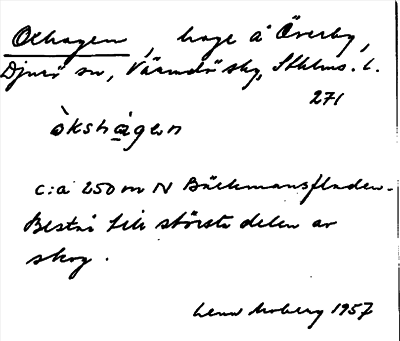 Oxhagen, hage å Överby,
Djurö sn, Värmdö skg, Sthlms. l.
271
òkshàgen
c:a 250 m N Bäckmansfladen.
Består till största delen av
skog.
Lena Moberg 1957